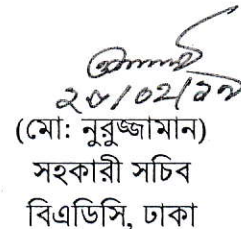 ২৮/০২/১৭
(মো: নুরুজ্জামান)
সহকারী সচিব
বিএডিসি, ঢাকা